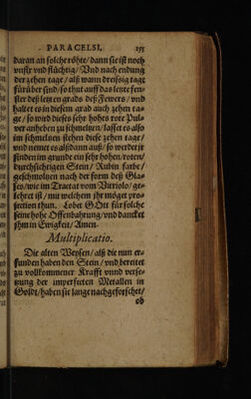 PARACELSI. 195
daran an solche röhte / dann sie ist noch
wust vnd flüchtig / Vnd nach endung
der zehen tage / alß wann dreissig tage
fürüber sind / so thut auff das letze fen-
ster deß letzten grads deß Fewers / vnd
haltet es in diesem grad auch zehen ta-
ge / so wird dieses sehr hohes rote Pul-
ver anheben zu schmeltzen / lasset es also
im schmeltzen stehen diese zehen tage /
vnd nemet es alßdann auß / so werdet jr
finden im grunde ein sehr hohen / roten /
durchsichtigen Stein / Rubin farbe /
geschmoltzen nach der form deß Gla-
ses / wie im Tractat vom Vitriolo / ge-
lehret ist / mit welchem jhr möget pro-
jection thun. Lobet GOtt für solche
seine hohe Offenbahrung / vnd dancket
jhm in Ewigkeit / Amen.
Multiplicatio.
Die alten Weysen / alß die nun er-
funden haben den Stein / vnd bereitet
zu vollkommener Krafft vnnd verse-
tzung der imperfecten Metallen in
Goldt / haben sie lange nachgeforschet /
ob